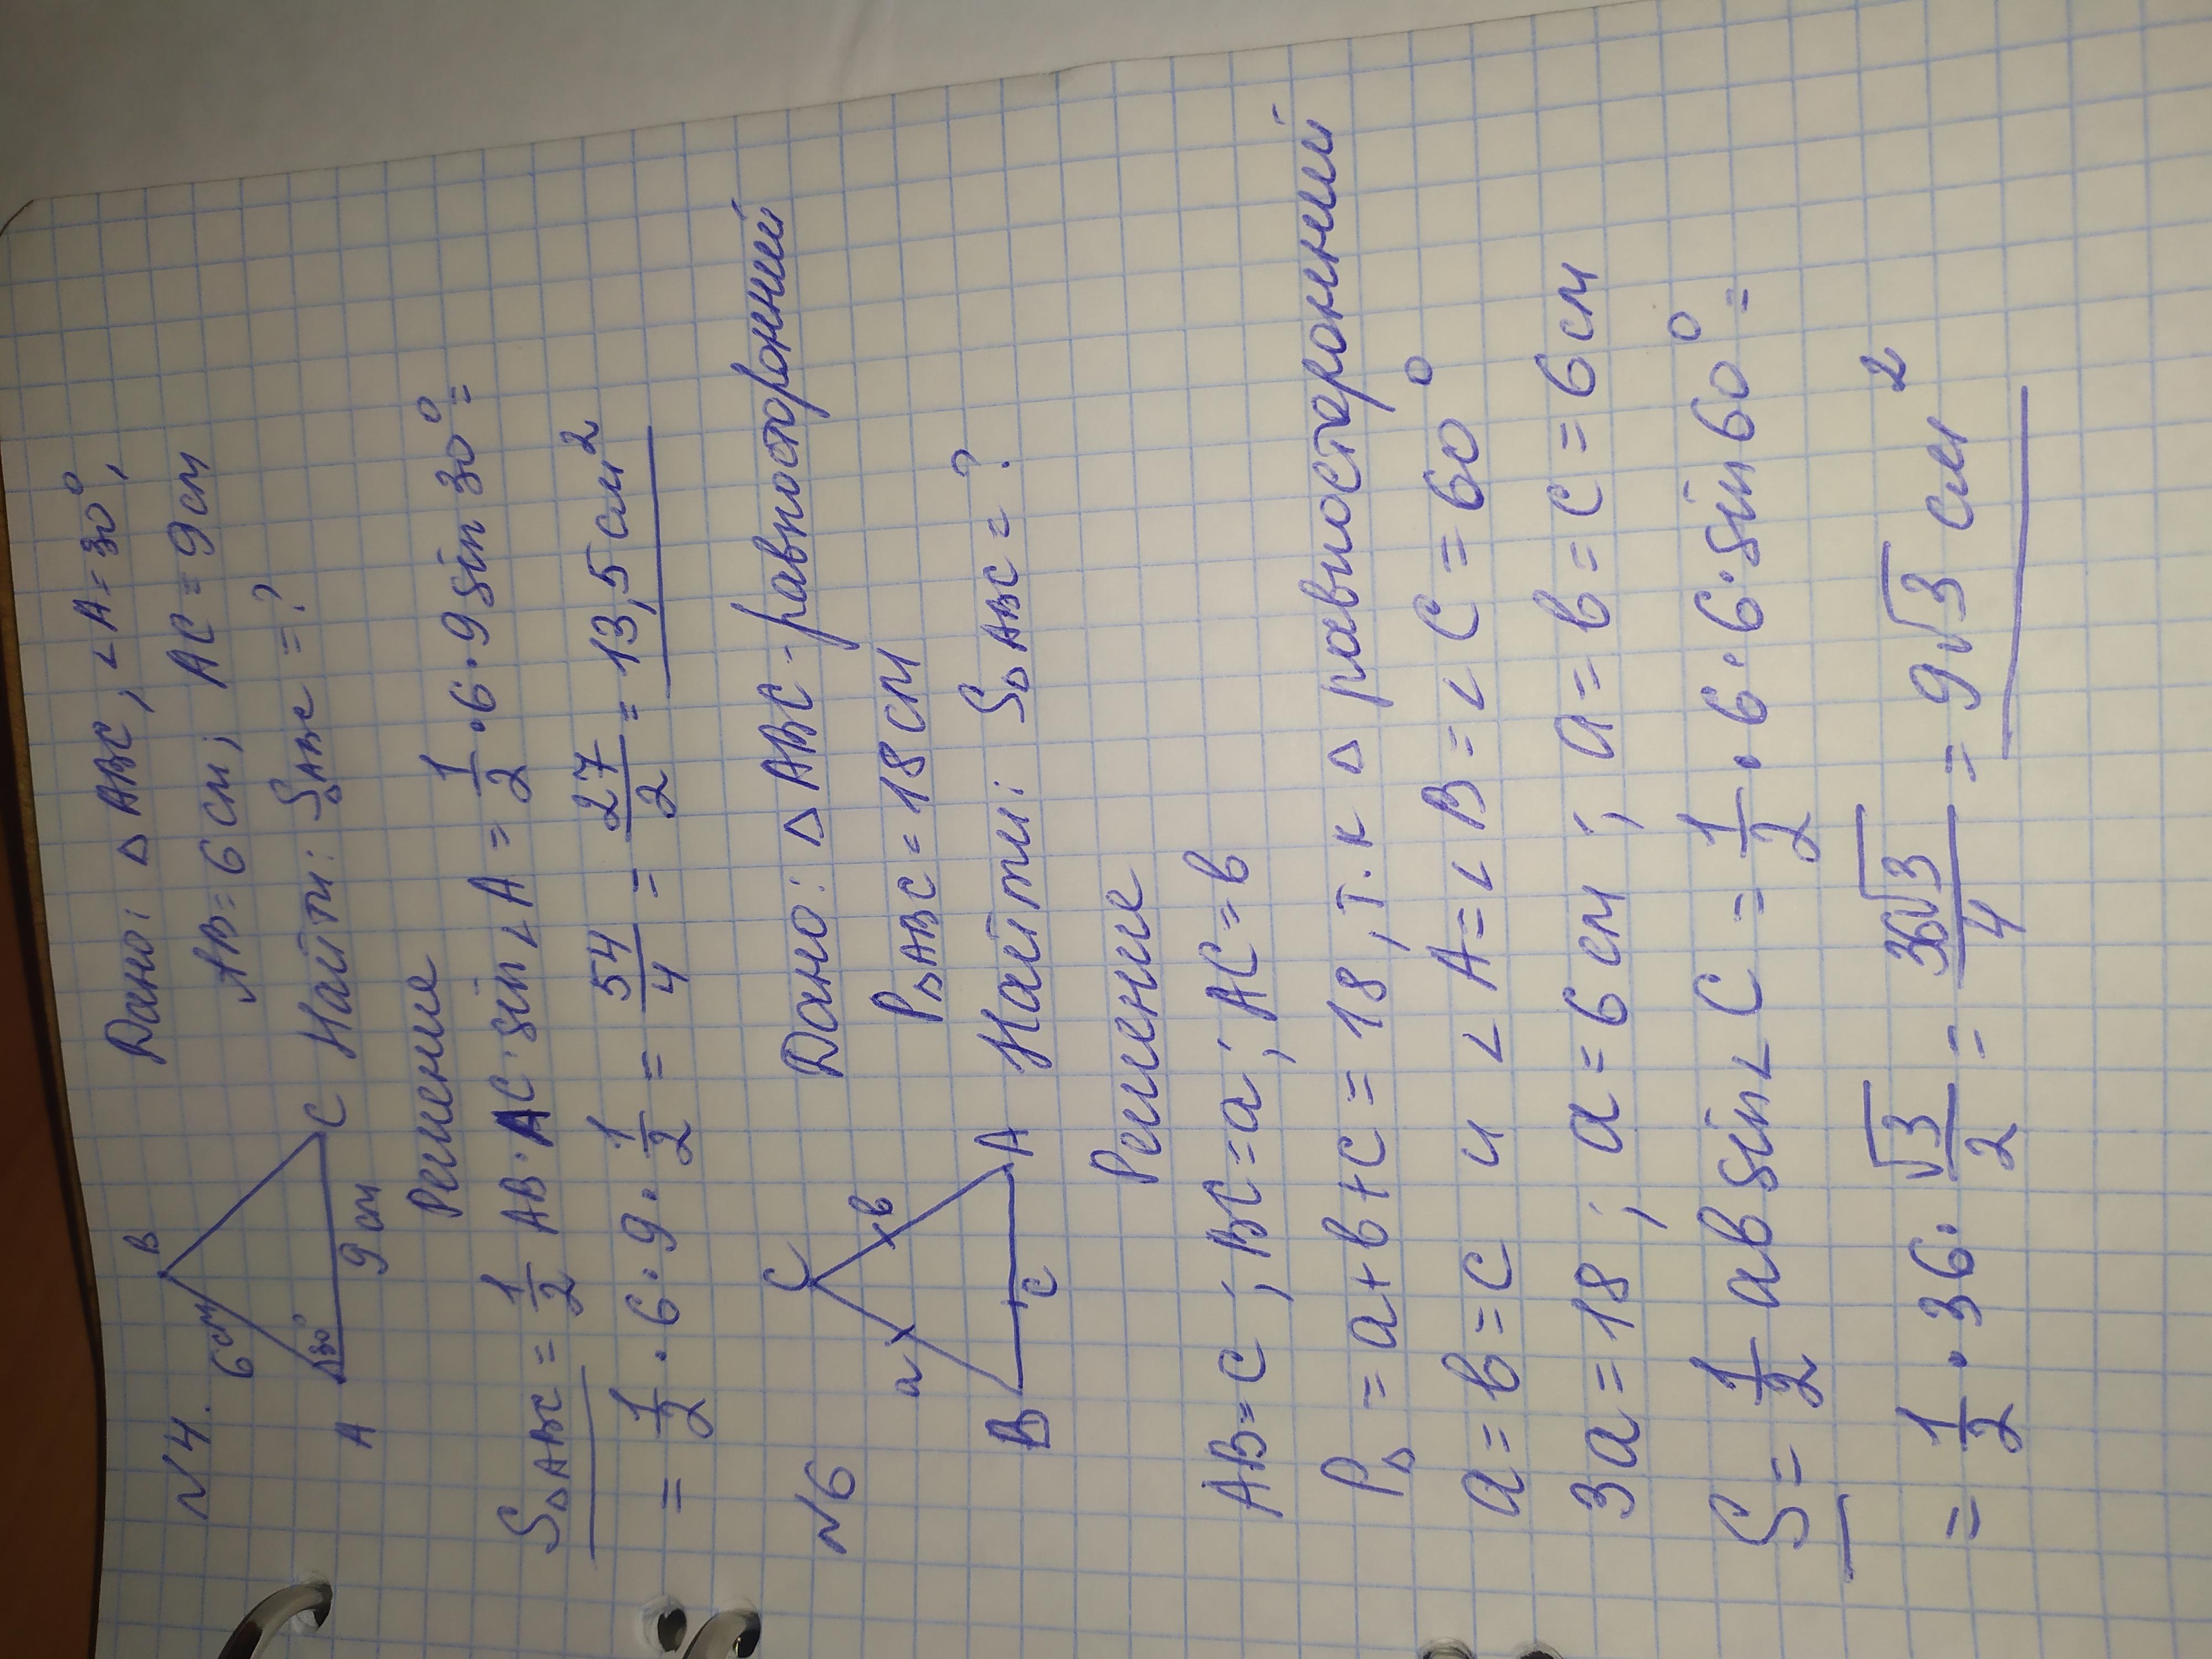 N4. Дано: △ABC, ∠A=30°,
B
6см AB=6см; AC=9см
30°
A 9см C Найти: S△ABC=?
Решение
S△ABC = 1/2 AB·AC·sin∠A = 1/2·6·9 sin 30° =
= 1/2·6·9·1/2 = 54/4 = 27/2 = 13,5 см²
N6 Дано: △ABC - равносторонний
C
a в P△ABC=18см
B c A Найти: S△ABC=?
Решение
AB=c; BC=a; AC=в
P△ = a+в+c=18, т.к △ равносторонний
a=в=c и ∠A=∠B=∠C=60°
3a=18; a=6см; a=в=c=6см
S = 1/2 aв sin∠C = 1/2·6·6·sin60° =
= 1/2·36·√3/2 = 36√3/4 = 9√3 см²